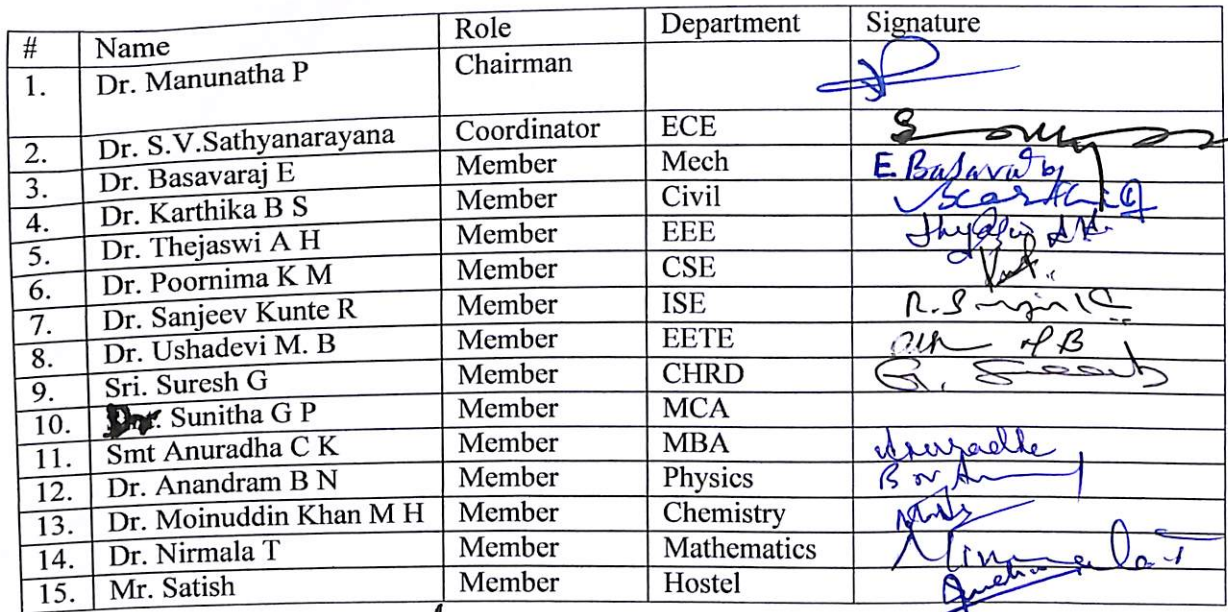 # Name Role Department Signature
1. Dr. Manunatha P Chairman
2. Dr. S.V.Sathyanarayana Coordinator ECE
3. Dr. Basavaraj E Member Mech E. Basavaraj
4. Dr. Karthika B S Member Civil
5. Dr. Thejaswi A H Member EEE
6. Dr. Poornima K M Member CSE
7. Dr. Sanjeev Kunte R Member ISE
8. Dr. Ushadevi M. B Member EETE
9. Sri. Suresh G Member CHRD
10. Dr. Sunitha G P Member MCA
11. Smt Anuradha C K Member MBA Anuradha
12. Dr. Anandram B N Member Physics
13. Dr. Moinuddin Khan M H Member Chemistry
14. Dr. Nirmala T Member Mathematics Nirmala T
15. Mr. Satish Member Hostel